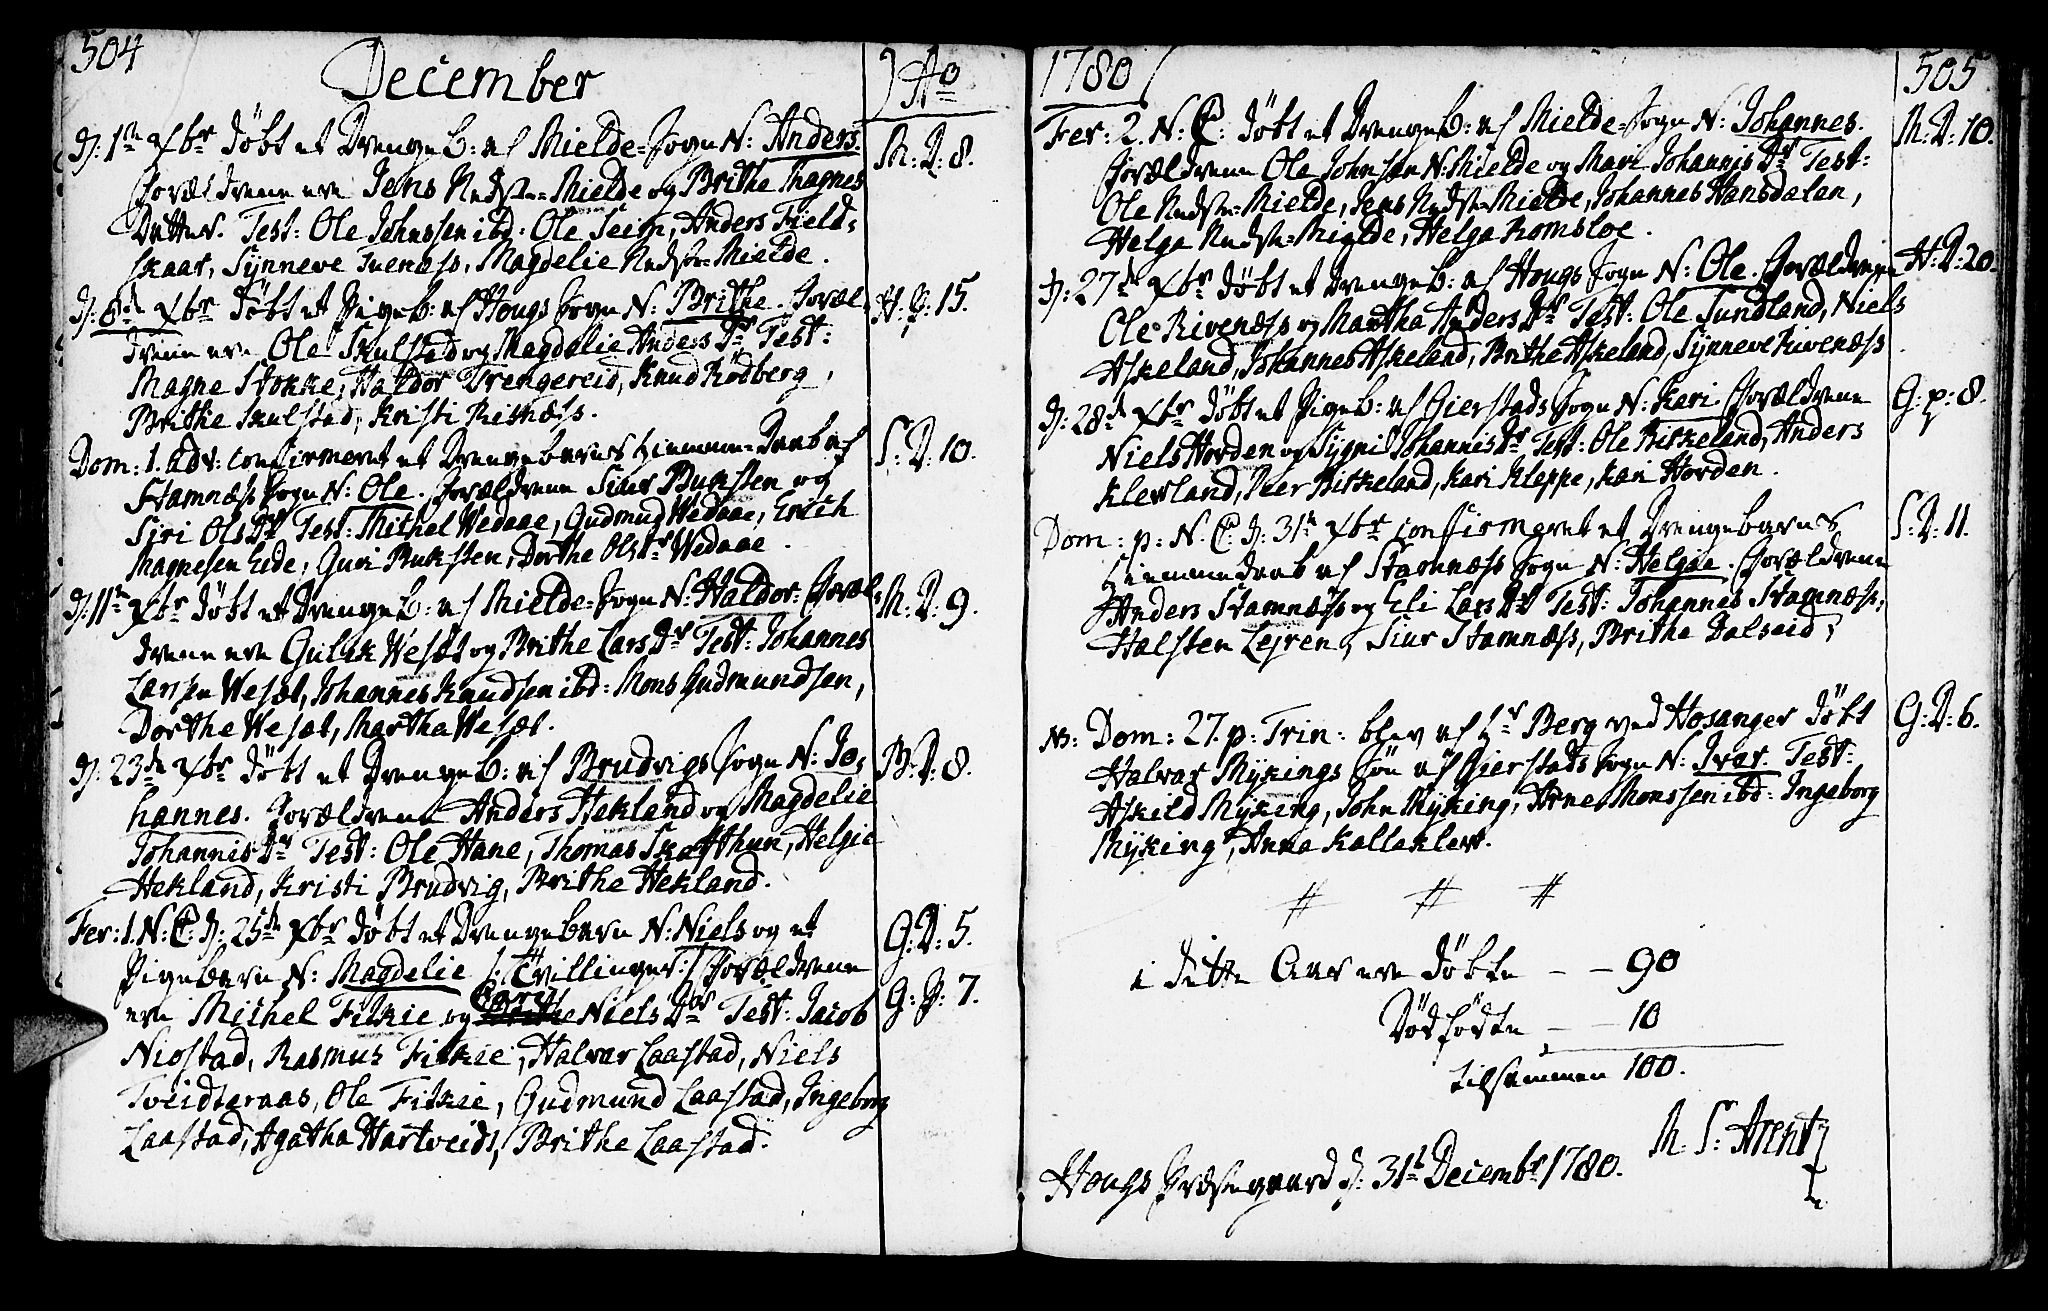 504
December
Ao
D: 1te Xbr döbt et Drengeb: af Mielde-Sogn N: Anders.
M: D: 8.
Forældrene ere Jens Nedste-Mielde og Brithe Magnes
Datter. Test: Ole Johnssen ibd: Ole Seim, Anders Field-
skaar, Synneve Tuenæss, Magdelie Nedste-Mielde.
D: 8de Xbr döbt et Pigeb: af Hougs Sogn N: Brithe. Foræl-
H: P: 15.
drene ere Ole Skulstad og Magdelie Anders Dr Test:
Magne Stokke, Haldor Trengereid, Knud Rödberg,
Brithe Skulstad, Kristi Reisnæss.
Dom: 1. Adv: confirmeret et Drengebarns Hiemme-Daab af
S: D: 10.
Stamnæss Sogn N: Ole. Forældrene Siur Buksten og
Siri Ols Dr Test: Michel Wedaae, Gudmund Wedaae, Erich
Magnesen Eide, Guri Buksten, Dorthe Olsdr Wedaae.
D: 11te Xbr döbt et Drengeb: af Mielde-Sogn N: Haldor. Foræl-
M: D: 9.
drene ere Gulak Wesæt og Brithe Lars Dr Test: Johannes
Larssen Wesæt, Johannes Knudsen ibd: Mons Gudmundsen,
Dorthe Wesæt, Martha Wesæt.
D: 23de Xbr döbt et Drengeb: af Brudvigs Sogn N: Jo-
B: D: 8.
hannes. Forældrene Anders Hekland og Magdelie
Johannis Dr Test: Ole Hane, Thomas Skaftthun, Helgie
Hekland, Kristi Brudvig, Brithe Hekland.
Fer: 1. N: C: D: 25de Xbr döbt et Drengebarn N: Niels og et
G: D: 5.
Pigebarn N: Magdelie /: Tvillinger :/ Forældrene
ere Michel Fitkie og Brithe Niels Dr Test: Jacob
G: P: 7.
Niostad, Rasmus Fitkie, Halvar Laastad, Niels
Tveidteraas, Ole Fitkie, Gudmund Laastad, Ingeborg
Laastad, Agatha Hartveidt, Brithe Laastad.
1780
505
Fer: 2. N: C: döbt et Drengeb: af Mielde-Sogn N: Johannes.
M: D: 10.
Forældrene Ole Johnsen N: Mielde og Mari Johannis Dr Test:
Ole Nedste-Mielde, Jens Nedste-Mielde, Johannes Hansdalen,
Helga Nedste-Mielde, Helga Romsloe.
D: 27de Xbr döbt et Drengeb: af Hougs Sogn N: Ole. Forældrene
H: D: 20.
Ole Rivenæss og Martha Anders Dr Test: Ole Sundland, Niels
Askeland, Johannes Askeland, Brithe Askeland, Synneve Rivenæss
D: 28de Xbr döbt et Pigeb: af Gierstads Sogn N: Kari. Forældrene
G: p: 8.
Niels Horden og Sygni Johannis Dr Test: Ole Birkeland, Anders
Kleveland, Peer Birkeland, Kari Kleppe, Kari Horden.
Dom: p: N. C: D: 31te Xbr confirmeret et Drengebarns
S: D: 11.
Hiemmedaab af Stamnæss Sogn N: Helgie. Forældrene
Anders Stamnæss og Eli Lars Dr Test: Johannes Stamnæss,
Halsten Lejren, Siur Stamnæss, Brithe Dalseid,
NB: Dom: 27. p: Trin: blev af Hr Berg ved Hosanger döbt
G: D: 6.
Halvar Mykings Sön af Gierstads Sogn N: Ivar. Test:
Askild Myking, John Myking, Arne Monssen ibd: Ingeborg
Myking, Anna Kalleklev.
# # #
i dette Aar ere döbte — — 90
Dödfödte — — 10
tilsammen 100.
M. S: Arentz
Hougs Præstegaard D: 31te Decembr 1780.